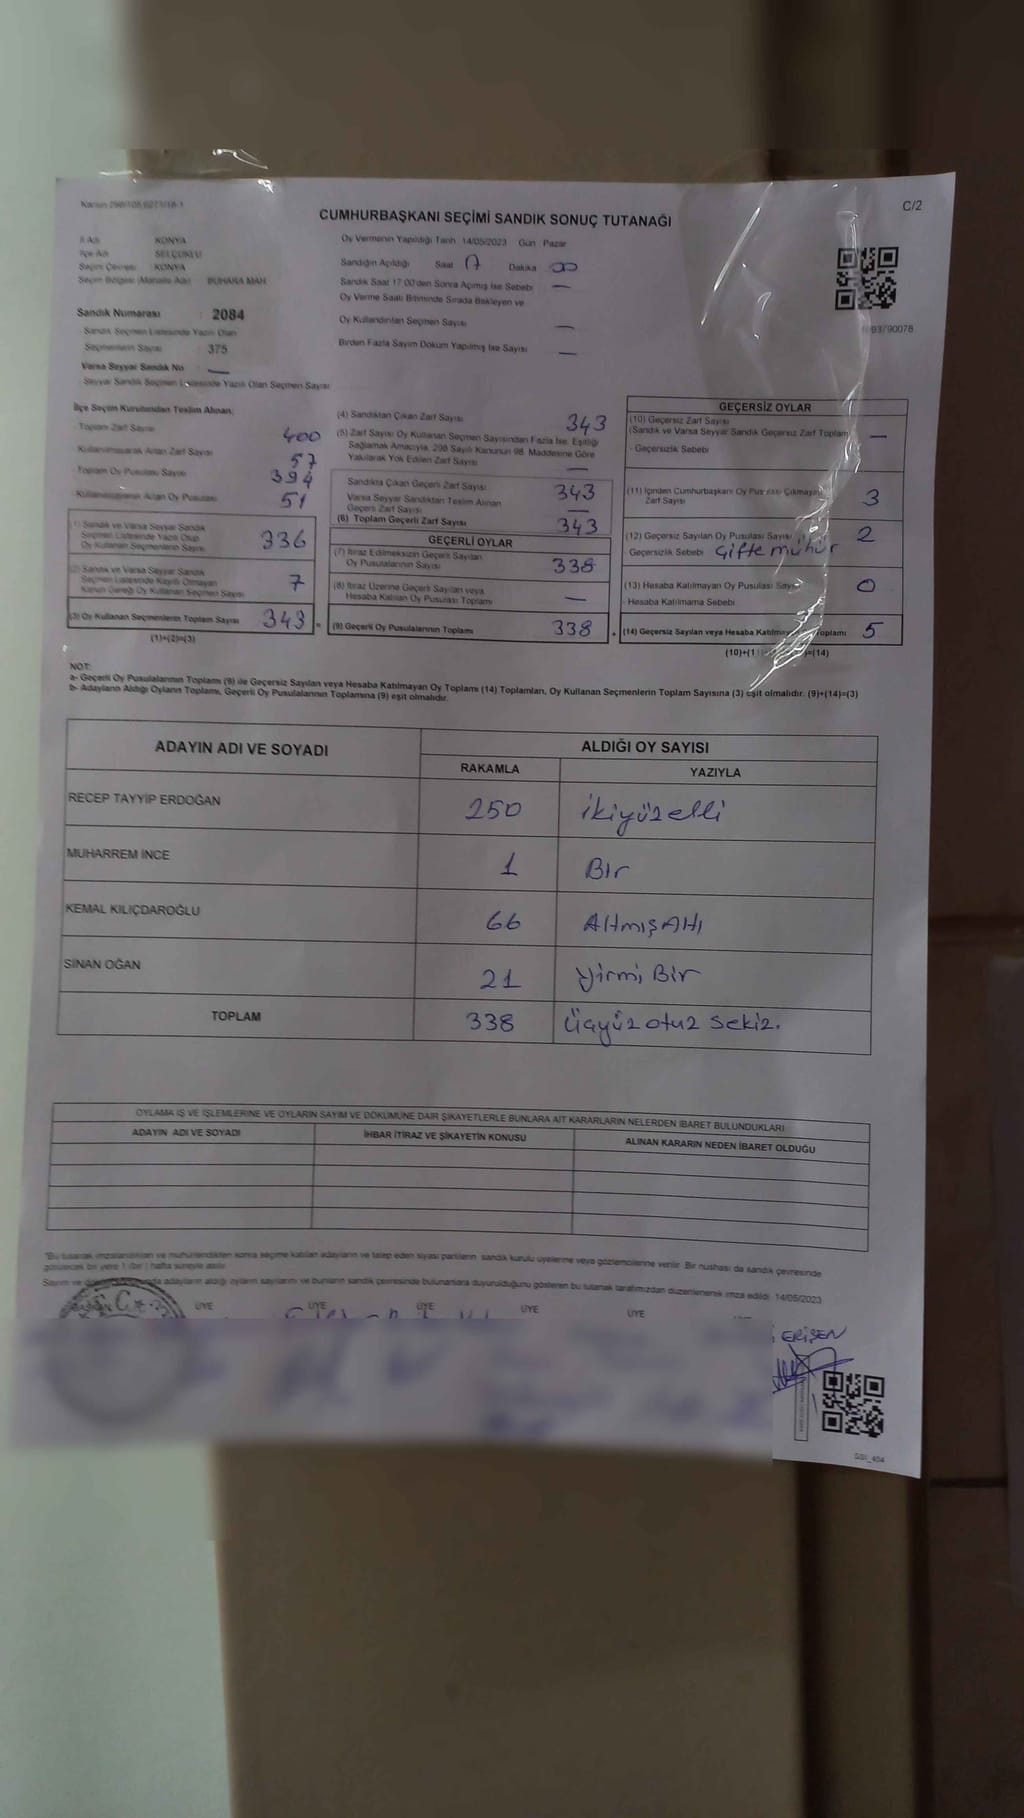 Kanun 298/105,6271/18-1
C/2
CUMHURBAŞKANI SEÇİMİ SANDIK SONUÇ TUTANAĞI
İl Adı KONYA
İlçe Adı SELÇUKLU
Seçim Çevresi KONYA
Seçim Bölgesi (Mahalle Adı) BUHARA MAH
Sandık Numarası : 2084
Sandık Seçmen Listesinde Yazılı Olan
Seçmenlerin Sayısı 375
Varsa Seyyar Sandık No —
Seyyar Sandık Seçmen Listesinde Yazılı Olan Seçmen Sayısı
Oy Vermenin Yapıldığı Tarih 14/05/2023 Gün Pazar
Sandığın Açıldığı Saat 17 Dakika 00
Sandık Saat 17:00'den Sonra Açılmış İse Sebebi —
Oy Verme Saati Bitiminde Sırada Bekleyen ve
Oy Kullandırılan Seçmen Sayısı —
Birden Fazla Sayım Döküm Yapılmış İse Sayısı —
İlçe Seçim Kurulundan Teslim Alınan;
- Toplam Zarf Sayısı 400
- Kullanılmayarak Artan Zarf Sayısı 57
- Toplam Oy Pusulası Sayısı 394
- Kullanılmayarak Artan Oy Pusulası 51
(1) Sandık ve Varsa Seyyar Sandık
Seçmen Listesinde Yazılı Olup
Oy Kullanan Seçmenlerin Sayısı 336
(2) Sandık ve Varsa Seyyar Sandık
Seçmen Listesinde Kayıtlı Olmayan
Kanun Gereği Oy Kullanan Seçmen Sayısı 7
(3) Oy Kullanan Seçmenlerin Toplam Sayısı 343
(1)+(2)=(3)
(4) Sandıktan Çıkan Zarf Sayısı 343
(5) Zarf Sayısı Oy Kullanan Seçmen Sayısından Fazla İse, Eşitliği
Sağlamak Amacıyla, 298 Sayılı Kanunun 98. Maddesine Göre
Yakılarak Yok Edilen Zarf Sayısı —
Sandıkta Çıkan Geçerli Zarf Sayısı 343
Varsa Seyyar Sandıktan Teslim Alınan
Geçerli Zarf Sayısı —
(6) Toplam Geçerli Zarf Sayısı 343
GEÇERLİ OYLAR
(7) İtiraz Edilmeksizin Geçerli Sayılan
Oy Pusulalarının Sayısı 338
(8) İtiraz Üzerine Geçerli Sayılan veya
Hesaba Katılan Oy Pusulası Toplamı —
= (9) Geçerli Oy Pusulalarının Toplamı 338
GEÇERSİZ OYLAR
(10) Geçersiz Zarf Sayısı
(Sandık ve Varsa Seyyar Sandık Geçersiz Zarf Toplamı —
- Geçersizlik Sebebi
(11) İçinden Cumhurbaşkanı Oy Pusulası Çıkmayan
Zarf Sayısı 3
(12) Geçersiz Sayılan Oy Pusulası Sayısı 2
- Geçersizlik Sebebi Çifte mühür
(13) Hesaba Katılmayan Oy Pusulası Sayısı 0
- Hesaba Katılmama Sebebi
+ (14) Geçersiz Sayılan veya Hesaba Katılmayan Toplamı 5
NOT:
a- Geçerli Oy Pusulalarının Toplamı (9) ile Geçersiz Sayılan veya Hesaba Katılmayan Oy Toplamı (14) Toplamları, Oy Kullanan Seçmenlerin Toplam Sayısına (3) eşit olmalıdır. (9)+(14)=(3)
b- Adayların Aldığı Oyların Toplamı, Geçerli Oy Pusulalarının Toplamına (9) eşit olmalıdır.
ADAYIN ADI VE SOYADI
ALDIĞI OY SAYISI
RAKAMLA YAZIYLA
RECEP TAYYİP ERDOĞAN 250 ikiyüzelli
MUHARREM İNCE 1 Bir
KEMAL KILIÇDAROĞLU 66 AltmışAltı
SİNAN OĞAN 21 Yirmi Bir
TOPLAM 338 üçyüz otuz sekiz.
OYLAMA İŞ VE İŞLEMLERİNE VE OYLARIN SAYIM VE DÖKÜMÜNE DAİR ŞİKAYETLERLE BUNLARA AİT KARARLARIN NELERDEN İBARET BULUNDUKLARI
ADAYIN ADI VE SOYADI İHBAR İTİRAZ VE ŞİKAYETİN KONUSU ALINAN KARARIN NEDEN İBARET OLDUĞU
*Bu tutanak imzalandıktan ve mühürlendikten sonra seçime katılan adayların ve talep eden siyasi partilerin sandık kurulu üyelerine veya gözlemcilerine verilir. Bir nüshası da sandık çevresinde
görülecek bir yere 1 (bir) hafta süreyle asılır.
adayların aldığı oyların sayılarını ve bunların sandık çevresinde bulunanlara duyurulduğunu gösteren bu tutanak tarafımızdan düzenlenerek imza edildi. 14/05/2023
ÜYE ÜYE ÜYE ÜYE ÜYE
ERİŞEN